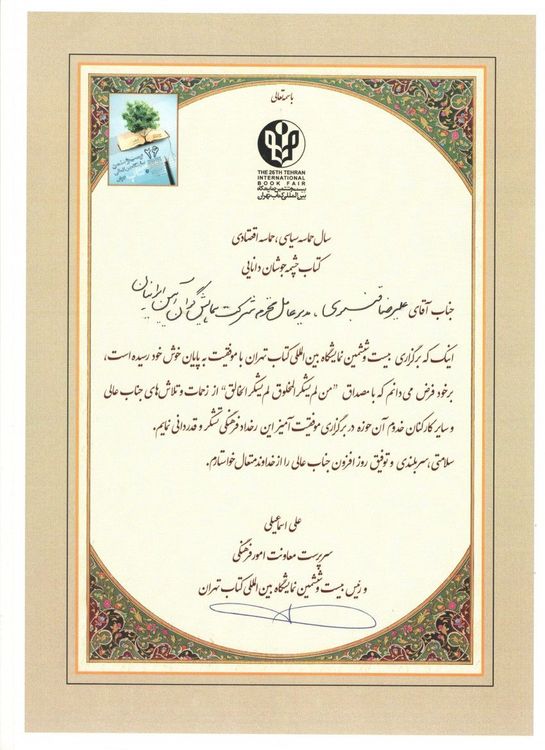 باسمه تعالی
THE 26TH TEHRAN
INTERNATIONAL
BOOK FAIR
بیست و ششمین نمایشگاه
بین المللی کتاب تهران
سال حماسه سیاسی، حماسه اقتصادی
کتاب چشمه جوشان دانایی
جناب آقای علیرضا قنبری، مدیرعامل محترم شرکت همایش گران آیین ایرانیان
اینک که برگزاری بیست و ششمین نمایشگاه بین المللی کتاب تهران با موفقیت به پایان خوش خود رسیده است،
بر خود فرض می دانم که با مصداق "من لم یشکر المخلوق لم یشکر الخالق" از زحمات و تلاش های جناب عالی
و سایر کارکنان خدوم آن حوزه در برگزاری موفقیت آمیز این رخداد فرهنگی تشکر و قدردانی نمایم.
سلامتی، سربلندی و توفیق روز افزون جناب عالی را از خداوند متعال خواستارم.
علی اسماعیلی
سرپرست معاونت امور فرهنگی
و رئیس بیست و ششمین نمایشگاه بین المللی کتاب تهران